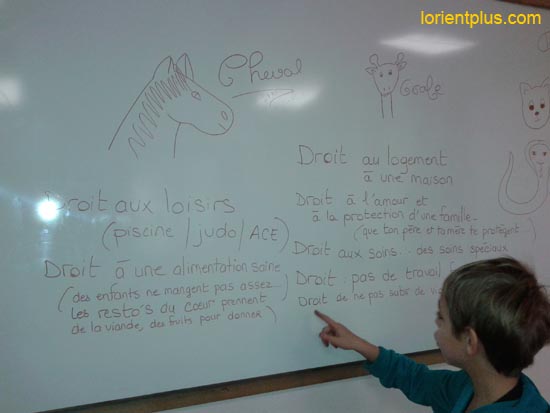 lorientplus.com
Cheval
Droit aux loisirs
(piscine / judo / ACE)
Droit à une alimentation saine
(des enfants ne mangent pas assez...
Les resto's du cœur prennent
de la viande, des fruits pour donner)
Droit au logement
à une maison
Droit à l'amour et
à la protection d'une famille.
(que ton père et ta mère te protègent)
Droit aux soins : des soins spéciaux
Droit : pas de travail
Droit de ne pas subir de